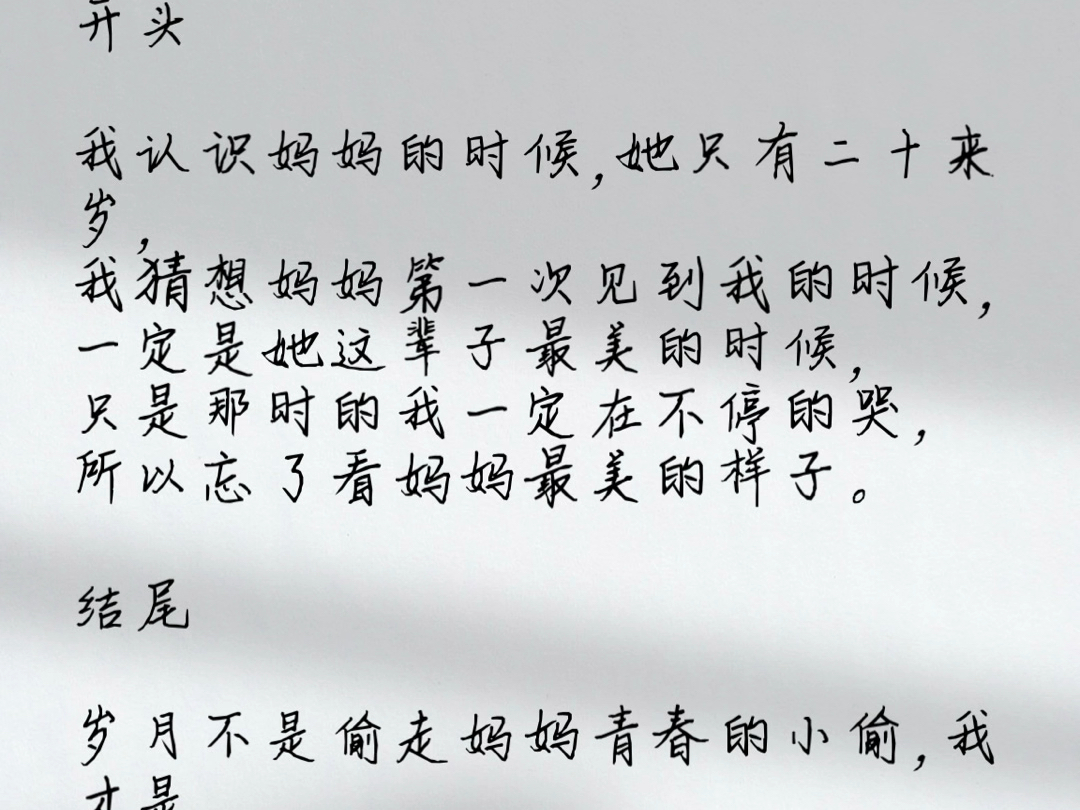 开头
我认识妈妈的时候,她只有二十来
岁,
我猜想妈妈第一次见到我的时候,
一定是她这辈子最美的时候,
只是那时的我一定在不停的哭,
所以忘了看妈妈最美的样子。
结尾
岁月不是偷走妈妈青春的小偷,我
才是